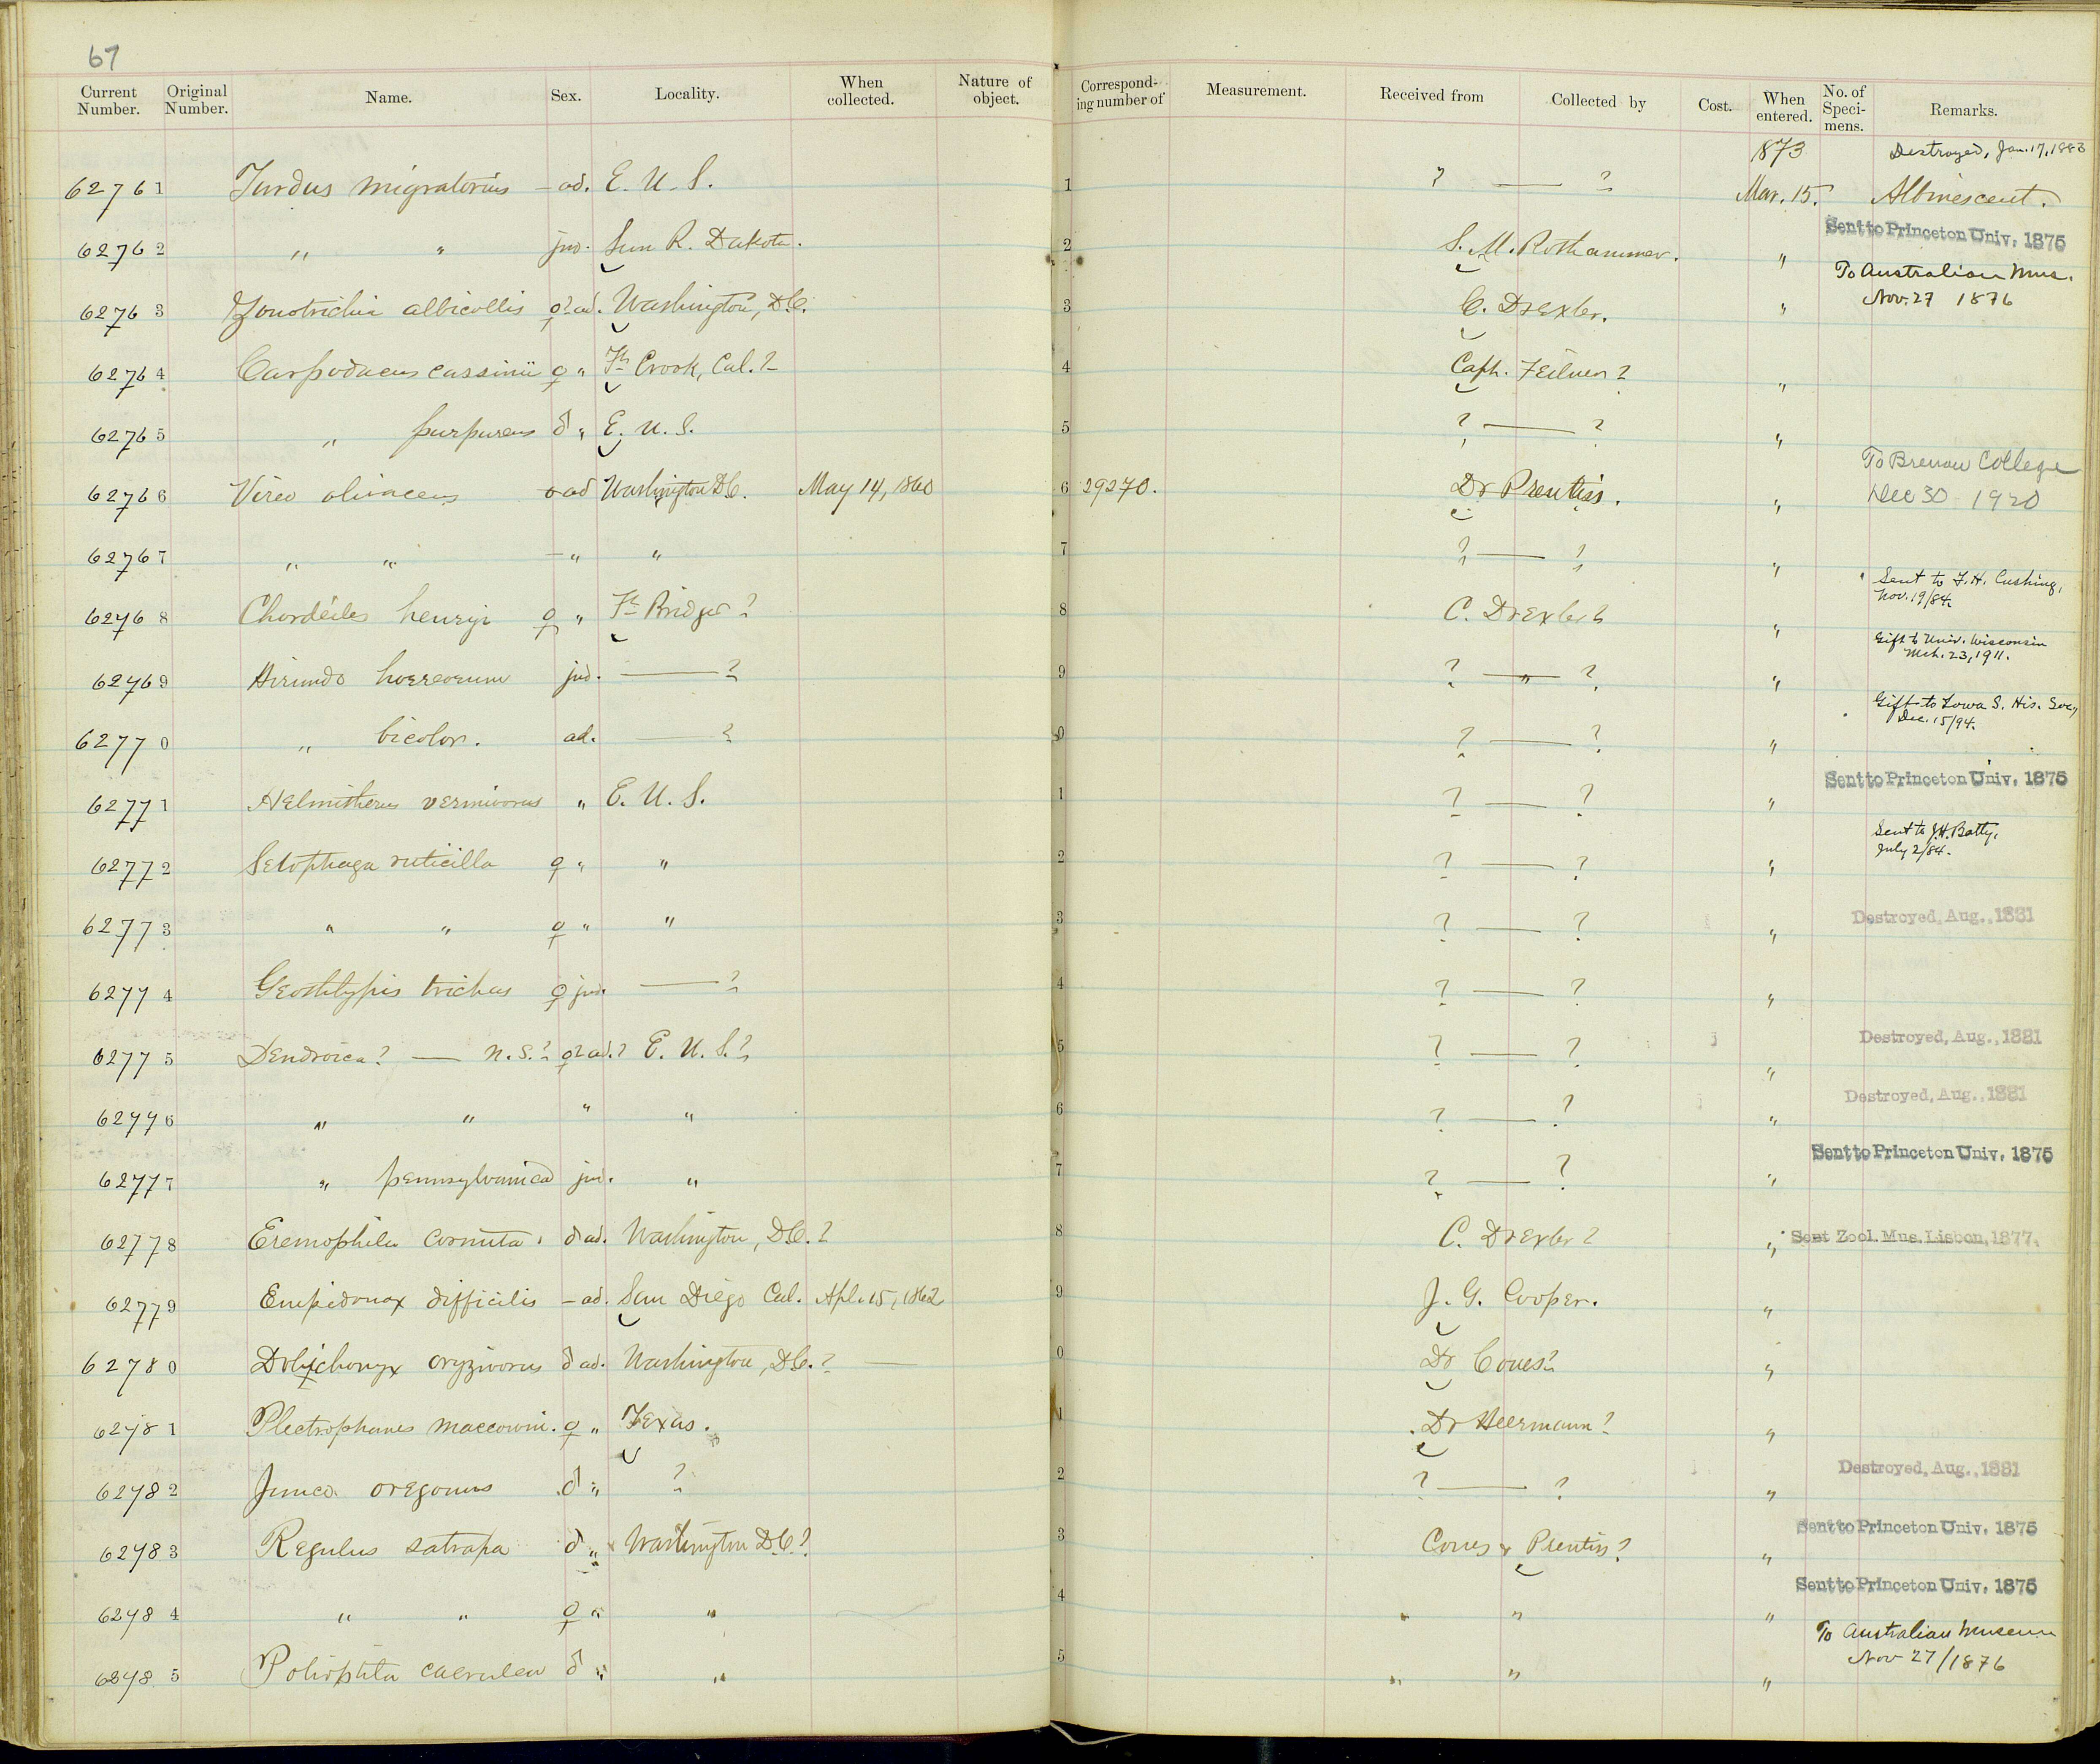 67
Current Number. Original Number. Name. Sex. Locality. When collected. Nature of object. Corresponding number of Measurement. Received from Collected by Cost. When entered. No. of Specimens. Remarks.
1873 Destroyed, Jan. 17, 1883
62761 Turdus migratorius — ad. E. U. S. 1 ? — ? Mar. 15. Albinescent.
Sent to Princeton Univ. 1875
62762 " " juv. Sun R. Dakota. 2 S. M. Rothammer. "
To Australian Mus.
62763 Zonotrichia albicollis ♀? ad. Washington, D.C. 3 C. Drexler. " Nov. 27 1876
62764 Carpodacus cassinii ♀ " Ft Crook, Cal.? 4 Capt. Feilner? "
62765 " purpureus ♂ " E. U. S. 5 ? — ? "
To Brenau College
62766 Vireo olivaceus — ad Washington D.C. May 14, 1860 6 29270. Dr Prentiss. " Dec 30 1920
62767 " " — " " 7 ? — ? "
Sent to F. H. Cushing,
Nov. 19/84.
62768 Chordeiles henryi ♀ " Ft Bridger? 8 C. Drexler? "
Gift to Univ. Wisconsin
Mch. 23, 1911.
62769 Hirundo horreorum juv. — ? 9 ? — " — ? "
Gift to Iowa S. His. Soc,
Dec. 15/94.
62770 " bicolor. ad. — ? 0 ? — ? "
Sent to Princeton Univ. 1875
62771 Helmitherus vermivorus " E. U. S. 1 ? — ? "
Sent to J. H. Batty,
July 2/84.
62772 Setophaga ruticilla ♀ " " 2 ? — ? "
62773 " " ♀ " " 3 ? — ? " Destroyed, Aug., 1881
62774 Geothlypis trichas ♀ juv. — ? 4 ? — ? "
62775 Dendroica? — n.s.? ♀? ad.? E. U. S.? 5 ? — ? " Destroyed, Aug., 1881
62776 " " " " 6 ? — ? " Destroyed, Aug., 1881
Sent to Princeton Univ. 1875
62777 " pennsylvanica juv. " 7 ? — ? "
62778 Eremophila cornuta. ♂ ad. Washington, D.C.? 8 C. Drexler? " Sent Zool. Mus. Lisbon, 1877.
62779 Empidonax difficilis — ad. San Diego Cal. Apl. 15, 1862 9 J. G. Cooper. "
62780 Dolichonyx oryzivorus ♂ ad. Washington, D.C.? 0 Dr Coues? "
62781 Plectrophanes maccowni. ♀ " Texas. 1 Dr Heermann? "
62782 Junco oregonus ♂ " ? 2 ? — ? " Destroyed, Aug., 1881
Sent to Princeton Univ. 1875
62783 Regulus satrapa ♂ " Washington D.C.? 3 Coues & Prentiss? "
Sent to Princeton Univ. 1875
62784 " " ♀ " " 4 " " "
To Australian Museum
62785 Polioptila caerulea ♂ " " 5 " " " Nov 27/1876